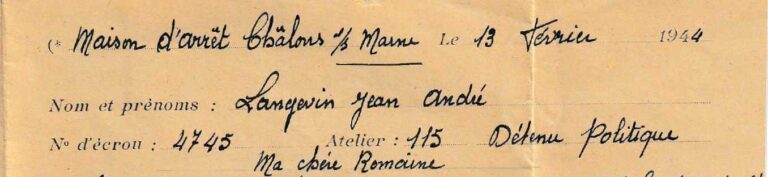 (* Maison d'arrêt Châlons s/s Marne Le 13 Février 1944
Nom et prénoms : Langevin Jean André
N° d'écrou : 4745 Atelier : 115 Détenu Politique
Ma chère Romaine